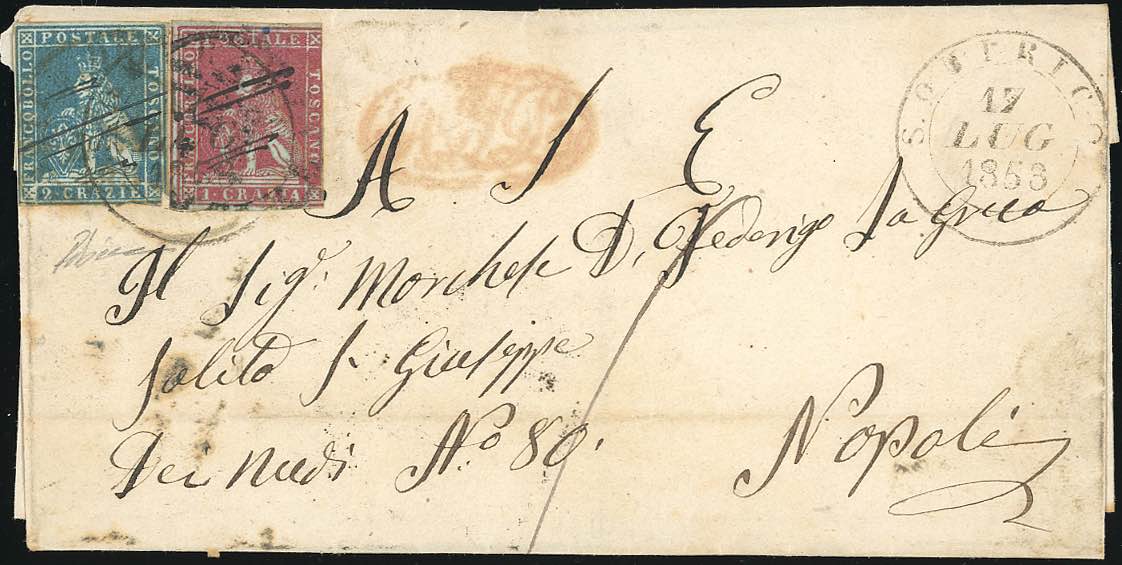 POSTALE
FRANCOBOLLO
TOSCANO
2. CRAZIE
TOSCANO
1. CRAZIA
17
LUG
1853
A S E
Il Sig.r Marchese D. Federigo La Greca
Salita S Giuseppe
Dei Nudi No 80.
Napoli